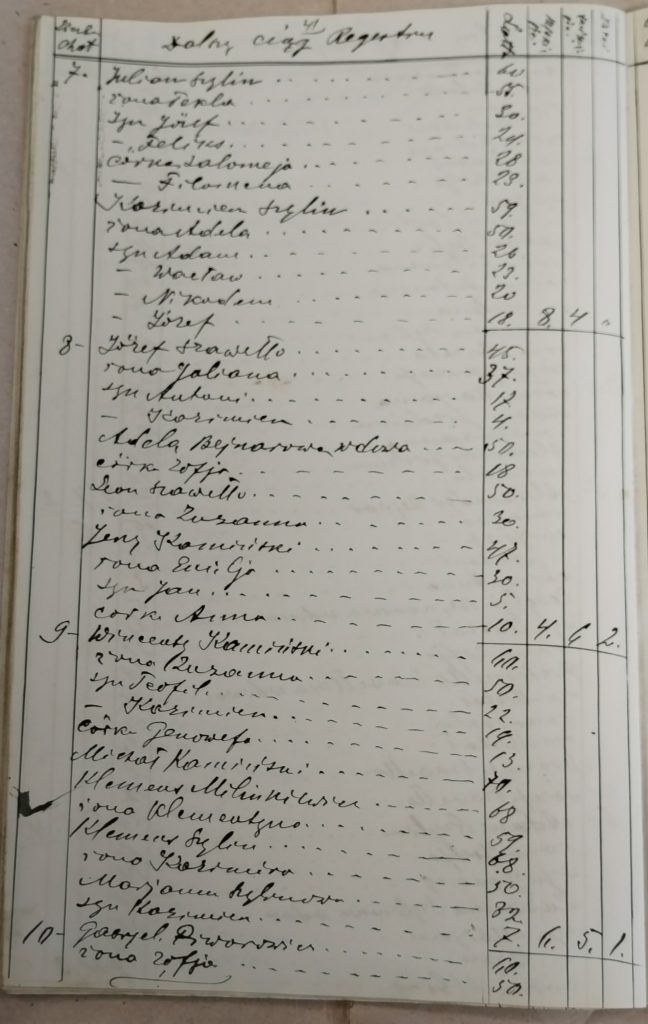 41
Dalszy ciąg Regestru Lata
7. Julian Szylin 60
żona Tekla 55.
syn Józef 30.
– Feliks 24.
córka Salomeja 28
— Filomena 23.
Kazimierz Szylin 59.
żona Adela 50.
syn Adam 26
– Wacław 23.
– Nikodem 20
– Józef 18. 8. 4 „
8– Józef Szawełło 45.
żona Juliana 37.
syn Antoni 17
– Kazimierz 4.
Adela Bejnarowa wdowa 50.
córka Zofja 18
Leon Szawełło 50.
żona Zuzanna 30.
Jerzy Kamiński 47.
żona Emilja 30.
syn Jan 5.
córka Anna 10. 4. 6 2.
9– Wincenty Kamiński 60.
żona Zuzanna 50.
syn Teofil 22.
– Kazimierz 19.
córka Genowefa 13.
Michał Kamiński 70.
Klemens 68
żona Klementyna 59.
Klemens Szylin 68.
żona Kazimira 50.
Marjanna Szylinowa 32.
syn Kazimierz 7. 6. 5. 1.
10– Gabryel Piworowicz 60.
żona Zofja 50.